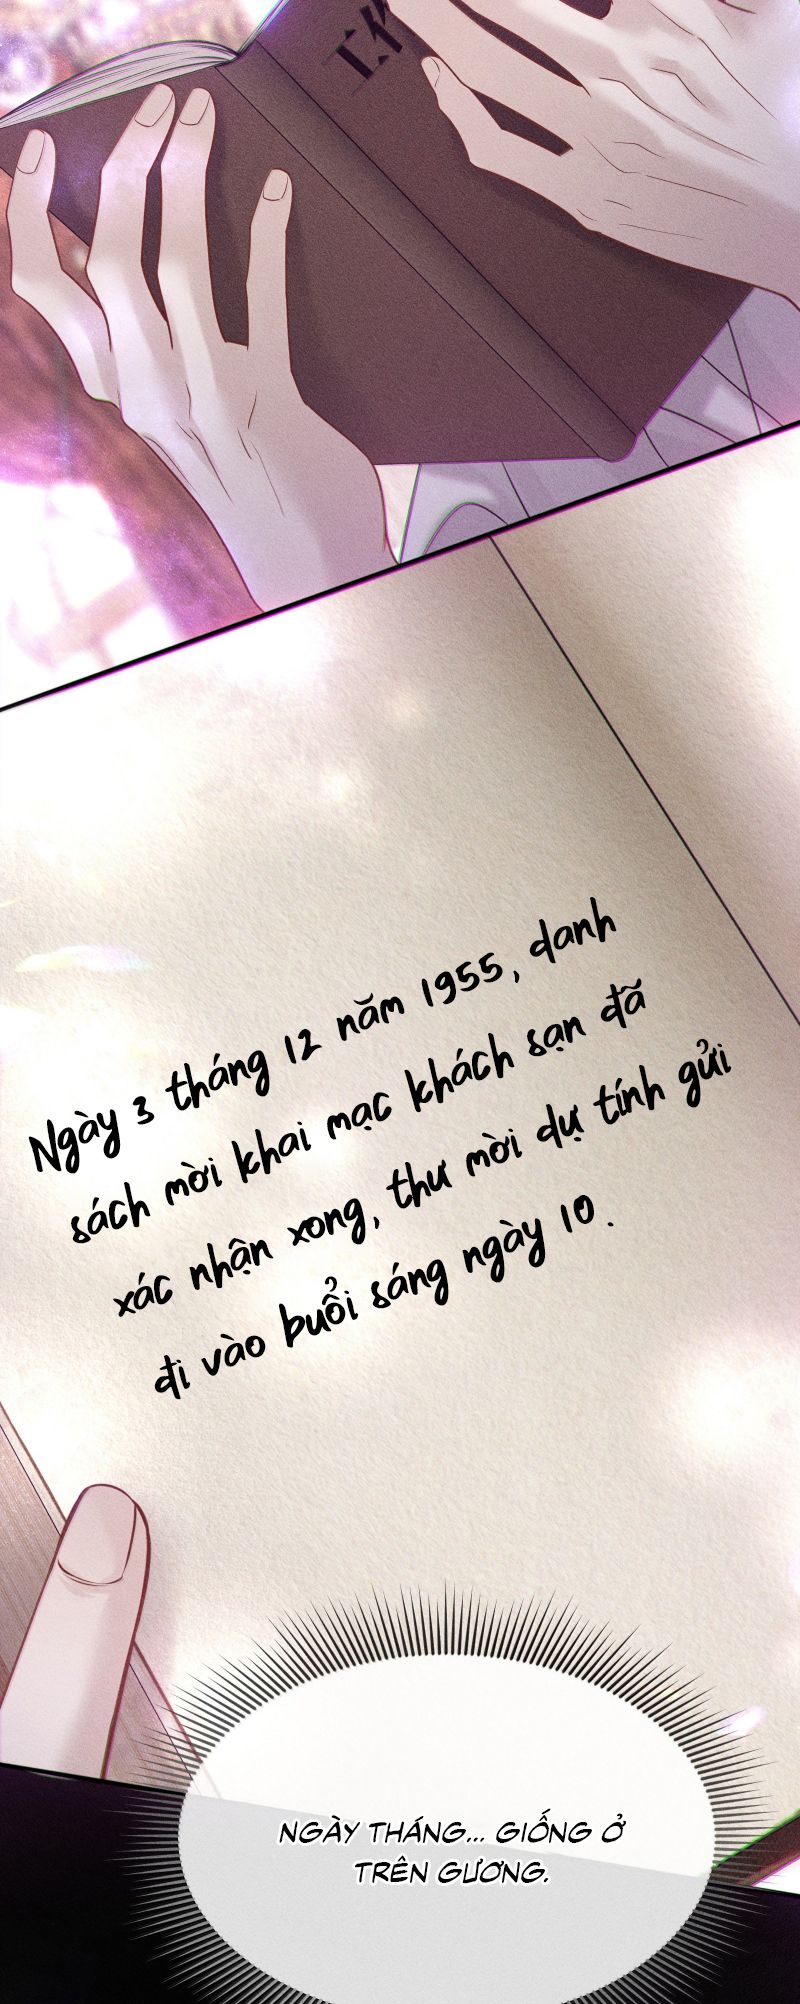 工作
Ngày 3 tháng 12 năm 1955, danh
sách mời khai mạc khách sạn đã
xác nhận xong, thư mời dự tính gửi
đi vào buổi sáng ngày 10.
NGÀY THÁNG... GIỐNG Ở
TRÊN GƯƠNG.